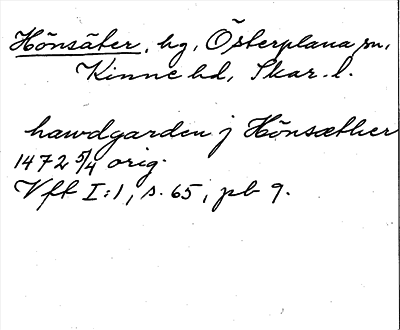 Hönsäter, hg, Österplana sn,
Kinne hd, Skar. l.
hawdgarden j Hönsæther
1472 5/4 orig.
Vft I:1, s. 65, pb 9.